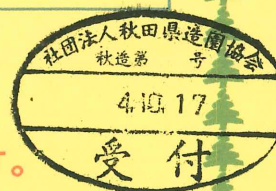 社団法人秋田県造園協会
秋造第　　号
4.10.17
受付